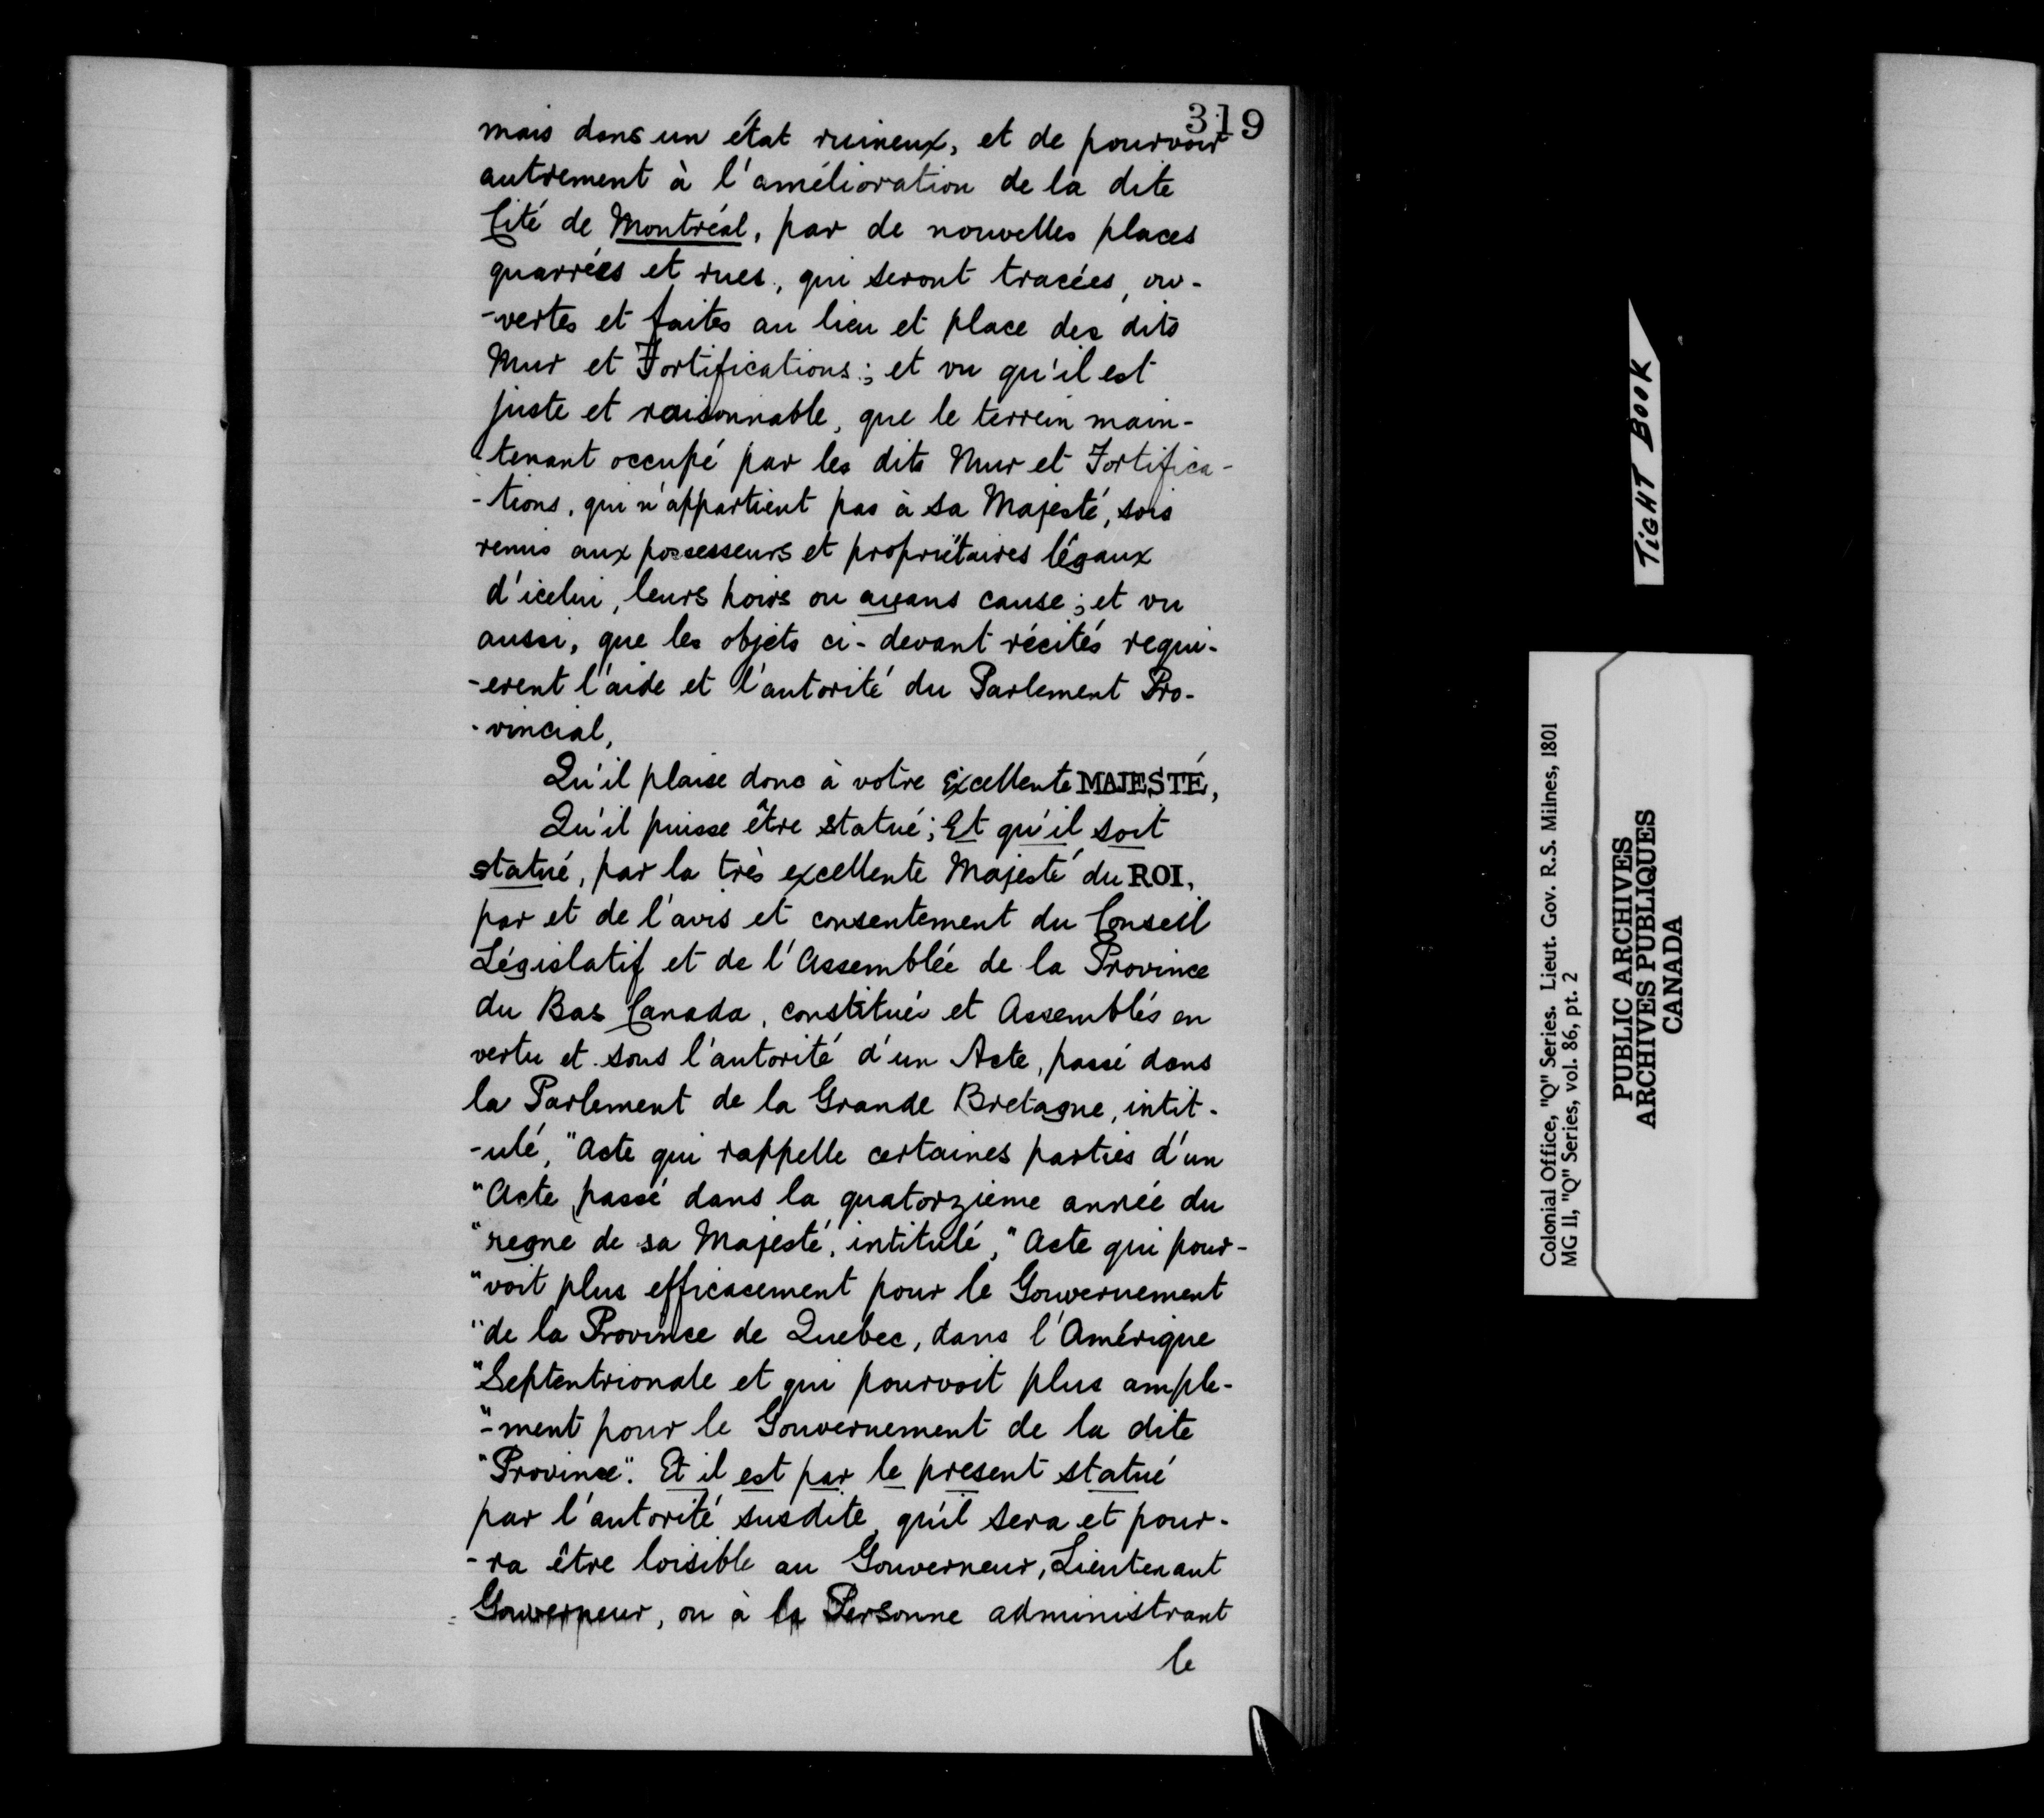 319
mais dans un état ruineux, et de pourvoir
autrement à l'amélioration de la dite
Cité de Montréal, par de nouvelles places
quarrées et rues, qui seront tracées, ou-
-vertes et faites au lieu et place des dits
Mur et Fortifications; et vu qu'il est
juste et raisonnable, que le terrein main-
-tenant occupé par les dits Mur et Fortifica-
-tions, qui n'appartient pas à sa Majesté, sois
remis aux possesseurs et propriétaires légaux
d'icelui, leurs hoirs ou ayans cause; et vu
aussi, que les objets ci-devant récités requi-
-erent l'aide et l'autorité du Parlement Pro-
-vincial,
Qu'il plaise donc à votre Excellente MAJESTÉ,
Qu'il puisse être statué; Et qu'il soit
statué, par la très excellente Majesté du ROI,
par et de l'avis et consentement du Conseil
Législatif et de l'Assemblée de la Province
du Bas Canada, constitués et Assemblés en
vertu et sous l'autorité d'un Acte, passé dans
la Parlement de la Grande Bretagne, intit-
-ulé, "Acte qui rappelle certaines parties d'un
"Acte passé dans la quatorzième année du
"regne de sa Majesté, intitulé, "Acte qui pour-
"voit plus efficasement pour le Gouvernement
"de la Province de Quebec, dans l'Amérique
"Septentrionale et qui pourvoit plus ample-
"-ment pour le Gouvernement de la dite
"Province". Et il est par le present statué
par l'autorité susdite, qu'il sera et pour-
-ra être loisible au Gouverneur, Lieutenant
Gouverneur, ou à la Personne administrant
le
TIGHT BOOK
Colonial Office, "Q" Series. Lieut. Gov. R.S. Milnes, 1801
MG 11, "Q" Series, vol. 86, pt. 2
PUBLIC ARCHIVES
ARCHIVES PUBLIQUES
CANADA